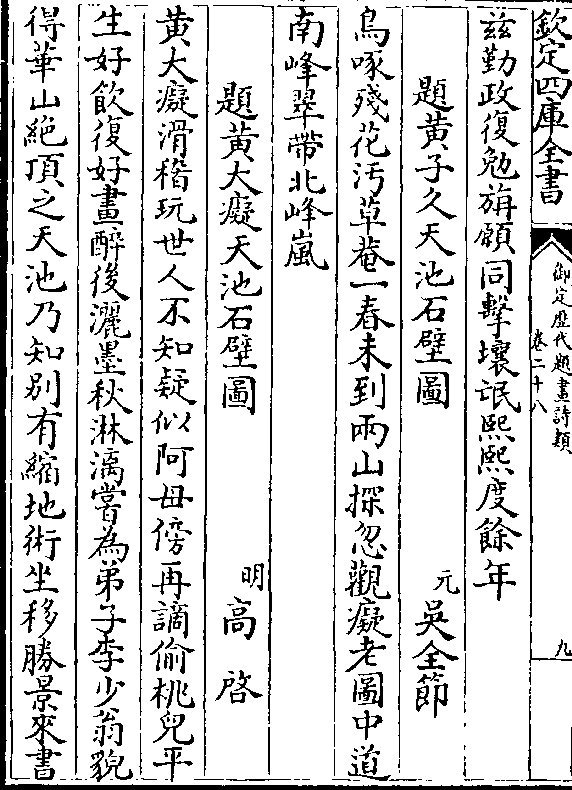 欽定四庫全書
御定歷代題畫詩類
卷二十八
九
兹勤政復勉旃願同擊壤氓熙熙度餘年
題黃子久天池石壁圖
元 吳全節
鳥啄殘花汚草菴一春未到兩山探忽觀癡老圖中道
南峰翠帶北峰嵐
題黃大癡天池石壁圖
明 高啓
黃大癡滑稽玩世人不知疑似阿母傍再謫偷桃兒平
生好飲復好畫醉後灑墨秋淋漓嘗為弟子李少翁貌
得華山絕頂之天池乃知别有縮地術坐移勝景來書